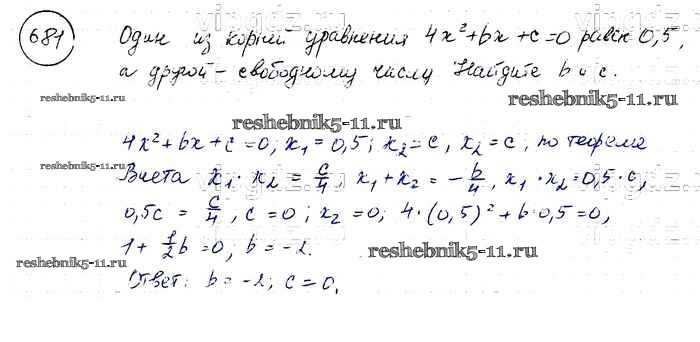 681 Один из корней уравнения 4x²+bx+c=0 равен 0,5,
а другой - свободному числу Найдите b и c.
reshebnik5-11.ru reshebnik5-11.ru
reshebnik5-11.ru
4x²+bx+c=0; x₁=0,5; x₂=c, x₂=c, по теореме
reshebnik5-11.ru
Виета x₁·x₂=c/4, x₁+x₂=-b/4, x₁·x₂=0,5·c,
0,5c=c/4, c=0; x₂=0; 4·(0,5)²+b·0,5=0,
1+1/2b=0, b=-2.
reshebnik5-11.ru reshebnik5-11.ru
Ответ: b=-2, c=0.